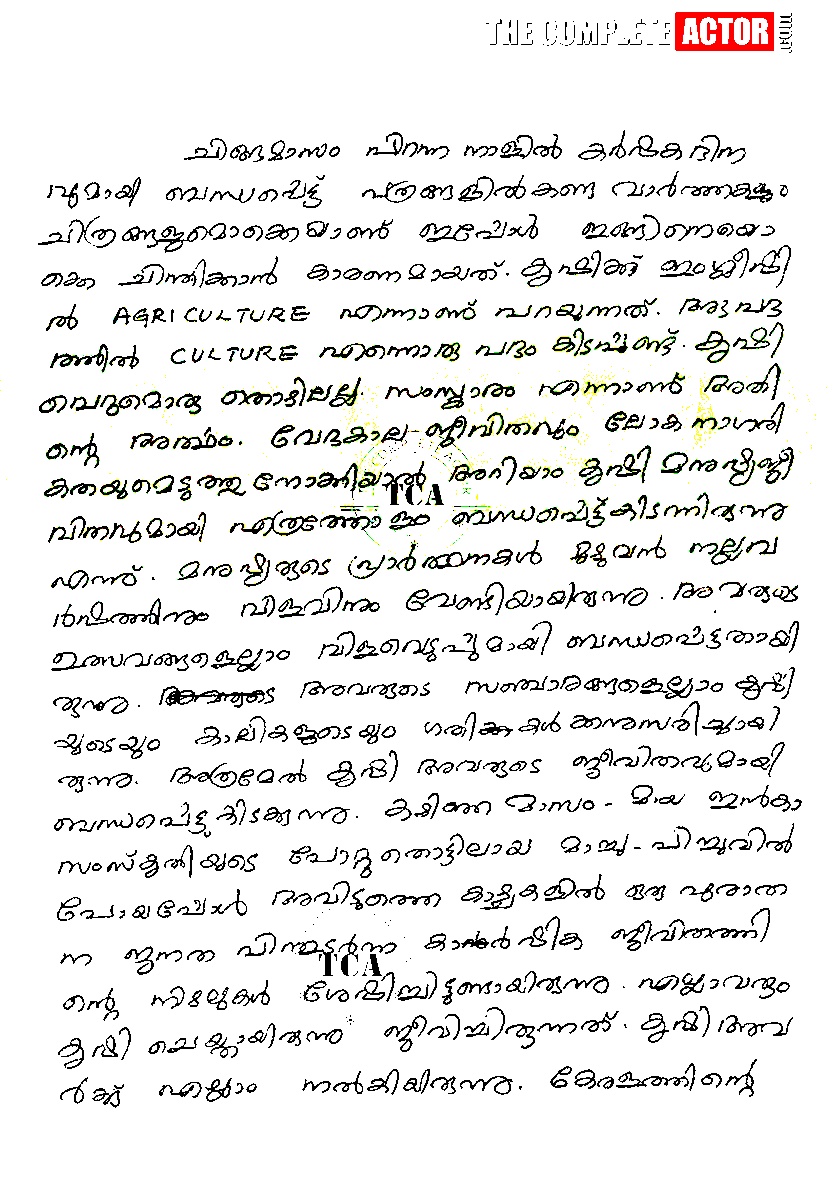 THE COMPLETE ACTOR
ചിങ്ങമാസം പിറന്ന നാളിൽ കർഷകദിന
വുമായി ബന്ധപ്പെട്ട് പത്രങ്ങളിൽകണ്ട വാർത്തകളും
ചിത്രങ്ങളുമൊക്കെയാണ് ഇപ്പോൾ ഇങ്ങിനെയൊ
ക്കെ ചിന്തിക്കാൻ കാരണമായത്. കൃഷിക്ക് ഇംഗ്ലീഷി
ൽ AGRICULTURE എന്നാണ് പറയുന്നത്. ആ പദ
ത്തിൽ CULTURE എന്നൊരു പദം കിടപ്പുണ്ട്. കൃഷി
വെറുമൊരു തൊഴിലല്ല. സംസ്ക്കാരം എന്നാണ് അതി
ന്റെ അർത്ഥം. വേദകാല ജീവിതവും ലോക നാഗരി
കതയുമെടുത്തു നോക്കിയാൽ അറിയാം കൃഷി മനുഷ്യജീ
TCA
വിതവുമായി എത്രത്തോളം ബന്ധപ്പെട്ട്കിടന്നിരുന്നു
എന്ന്. മനുഷ്യരുടെ പ്രാർത്ഥനകൾ മുഴുവൻ നല്ലവ
ർഷത്തിനും വിളവിനും വേണ്ടിയായിരുന്നു. അവരുടെ
ഉത്സവങ്ങളെല്ലാം വിളവെടുപ്പുമായി ബന്ധപ്പെട്ടതായി
രുന്നു. അവരുടെ സഞ്ചാരങ്ങളെല്ലാം കൃഷി
യുടെയും കാലികളുടെയും ഗതിക്കനുസരിച്ചായി
രുന്നു. അത്രമേൽ കൃഷി അവരുടെ ജീവിതവുമായി
ബന്ധപ്പെട്ടു കിടക്കുന്നു. കഴിഞ്ഞ മാസം - മയ ഇൻകാ
സംസ്കൃതിയുടെ പോറ്റുതൊട്ടിലായ മാച്ചു-പിച്ചുവിൽ
പോയപ്പോൾ അവിടുത്തെ കാഴ്ചകളിൽ ഒരു പുരാത
ന ജനത പിന്തുടർന്ന കാർഷിക ജീവിതത്തി
TCA
ന്റെ നിഴലുകൾ ശേഷിച്ചിട്ടുണ്ടായിരുന്നു. എല്ലാവരും
കൃഷി ചെയ്തായിരുന്നു ജീവിച്ചിരുന്നത്. കൃഷി അവ
ർക്ക് എല്ലാം നൽകിയിരുന്നു. കേരളത്തിന്റെ